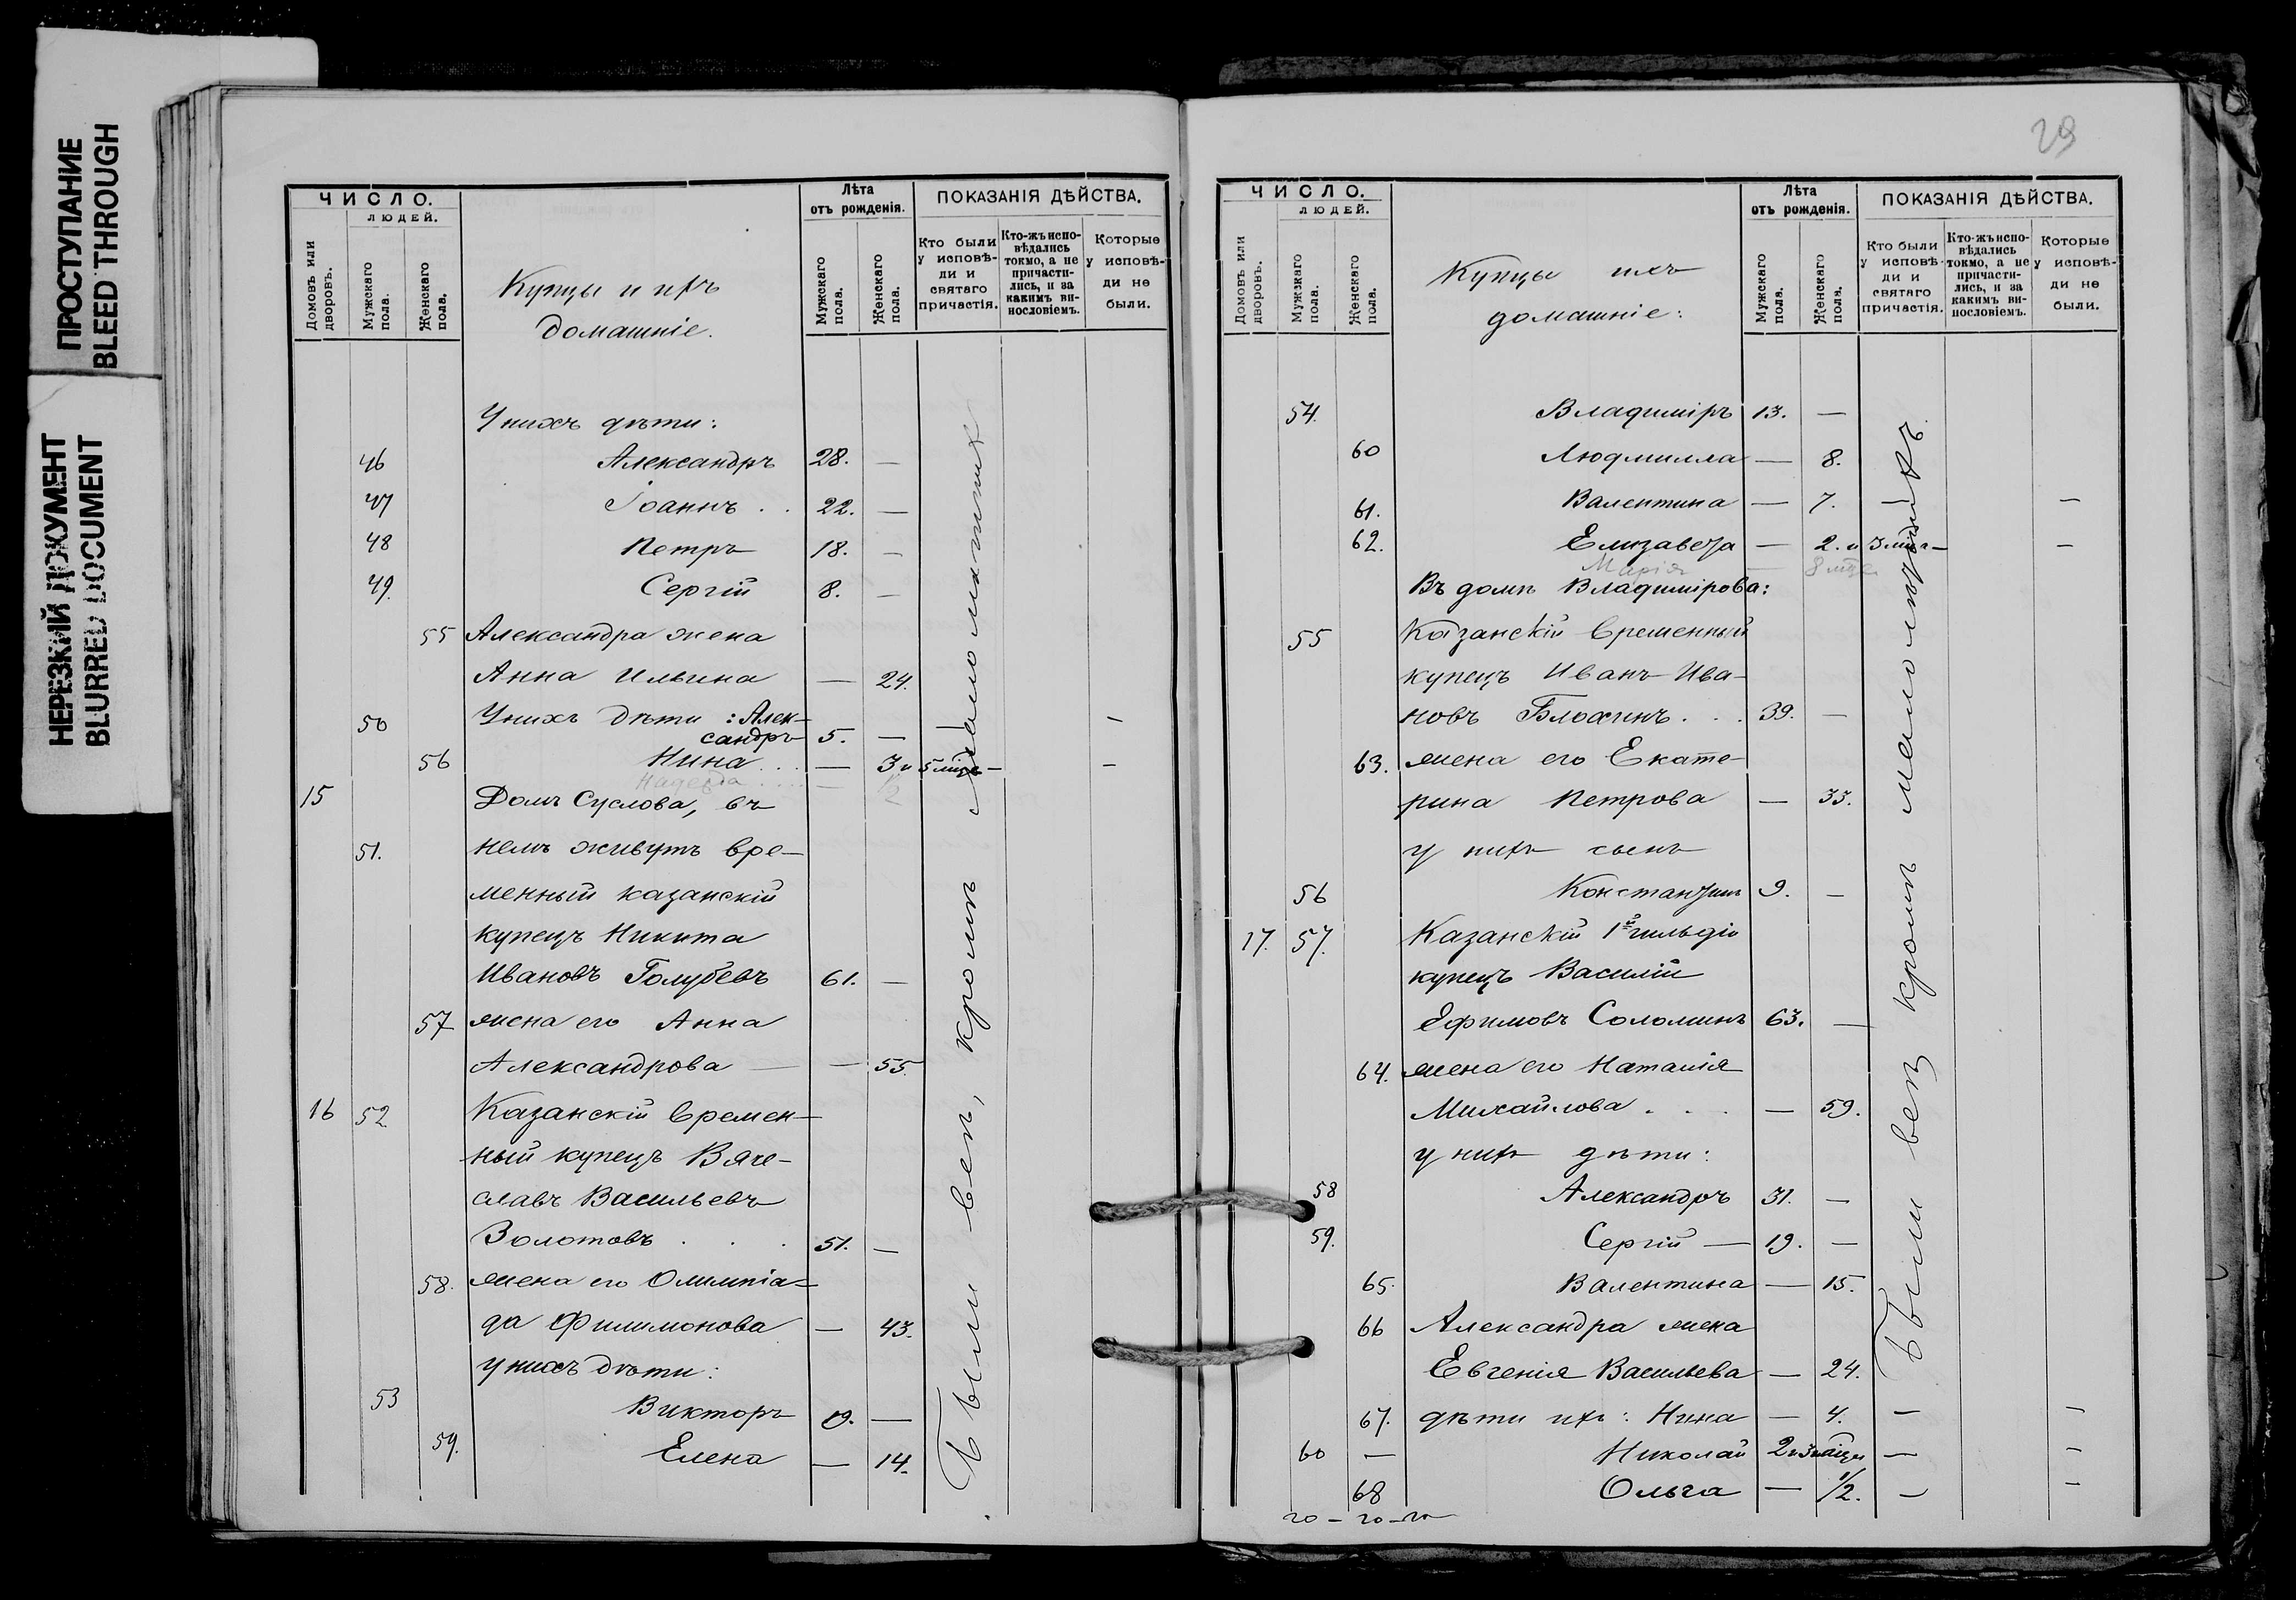 ПРОСТУПАНИЕ
BLEED THROUGH
НЕРЕЗКИЙ ДОКУМЕНТ
BLURRED DOCUMENT
ЧИСЛО.
ЛЮДЕЙ.
Домовъ или дворовъ.
Мужскаго пола.
Женскаго пола.
Купцы и ихъ
домашніе.
Лѣта
отъ рожденія.
Мужскаго пола.
Женскаго пола.
ПОКАЗАНІЯ ДѢЙСТВА.
Кто были у исповѣди и святаго причастія.
Кто-жъ исповѣдались токмо, а не причастились, и за какимъ винословіемъ.
Которые у исповѣди не были.
У нихъ дѣти:
46 Александръ 28. —
47 Іоаннъ . . 22. —
48 Петръ 18. —
49. Сергій 8. —
55 Александра жена
Анна Ильина — 24.
50 У нихъ дѣти: Алек-
сандръ 5. — —
56 Нина . . . — 3 и 5 мѣс. — —
Надежда . . . . — 1/2
15 Домъ Суслова, въ
51. немъ живутъ вре-
менный казанскій
купецъ Никита
Ивановъ Голубевъ 61. —
57 жена его Анна
Александрова — — 55.
16 52 Казанскій времен-
ный купецъ Вяче-
славъ Васильевъ
Золотовъ . . . 51. —
58. жена его Олимпіа-
да Филимонова — 43.
у нихъ дѣти:
53 Викторъ 19. —
59. Елена — 14.
Были всѣ, кромѣ малолѣтнихъ
29
ЧИСЛО.
ЛЮДЕЙ.
Домовъ или дворовъ.
Мужскаго пола.
Женскаго пола.
Купцы ихъ
домашніе:
Лѣта
отъ рожденія.
Мужскаго пола.
Женскаго пола.
ПОКАЗАНІЯ ДѢЙСТВА.
Кто были у исповѣди и святаго причастія.
Кто-жъ исповѣдались токмо, а не причастились, и за какимъ винословіемъ.
Которые у исповѣди не были.
54. Владиміръ 13. —
60 Людмилла — 8.
61. Валентина — 7. — —
62. Елизавета — 2. и 3 мѣс. — —
Марія — 8 мѣс
Въ домѣ Владимірова:
55 Казанскій временный
купецъ Иванъ Ива-
новъ Блохинъ . . . 39. —
63. жена его Екате-
рина Петрова — 33.
у нихъ сынъ
56 Константинъ 9. —
17. 57. Казанскій 1й гильдіи
купецъ Василій
Ефимовъ Соломинъ 63. —
64. жена его Наталія
Михайлова . . . — 59.
у нихъ дѣти:
58 Александръ 31. —
59. Сергій — 19. —
65. Валентина — 15.
66 Александра жена
Евгенія Васильева — 24.
67. дѣти ихъ: Нина — 4. — —
60 — Николай 2 и 3 мѣсяц — —
68 Ольга — 1/2. — —
Были всѣ кромѣ малолѣтнихъ.